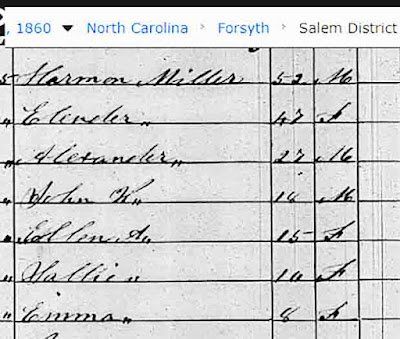 , 1860 ▼ North Carolina › Forsyth › Salem District
5 Harmon Miller 52 M
" Elender " 47 F
" Alexander " 27 M
" John K " 18 M
" Ellen A " 15 F
" Hallie " 10 F
" Emma " 8 F